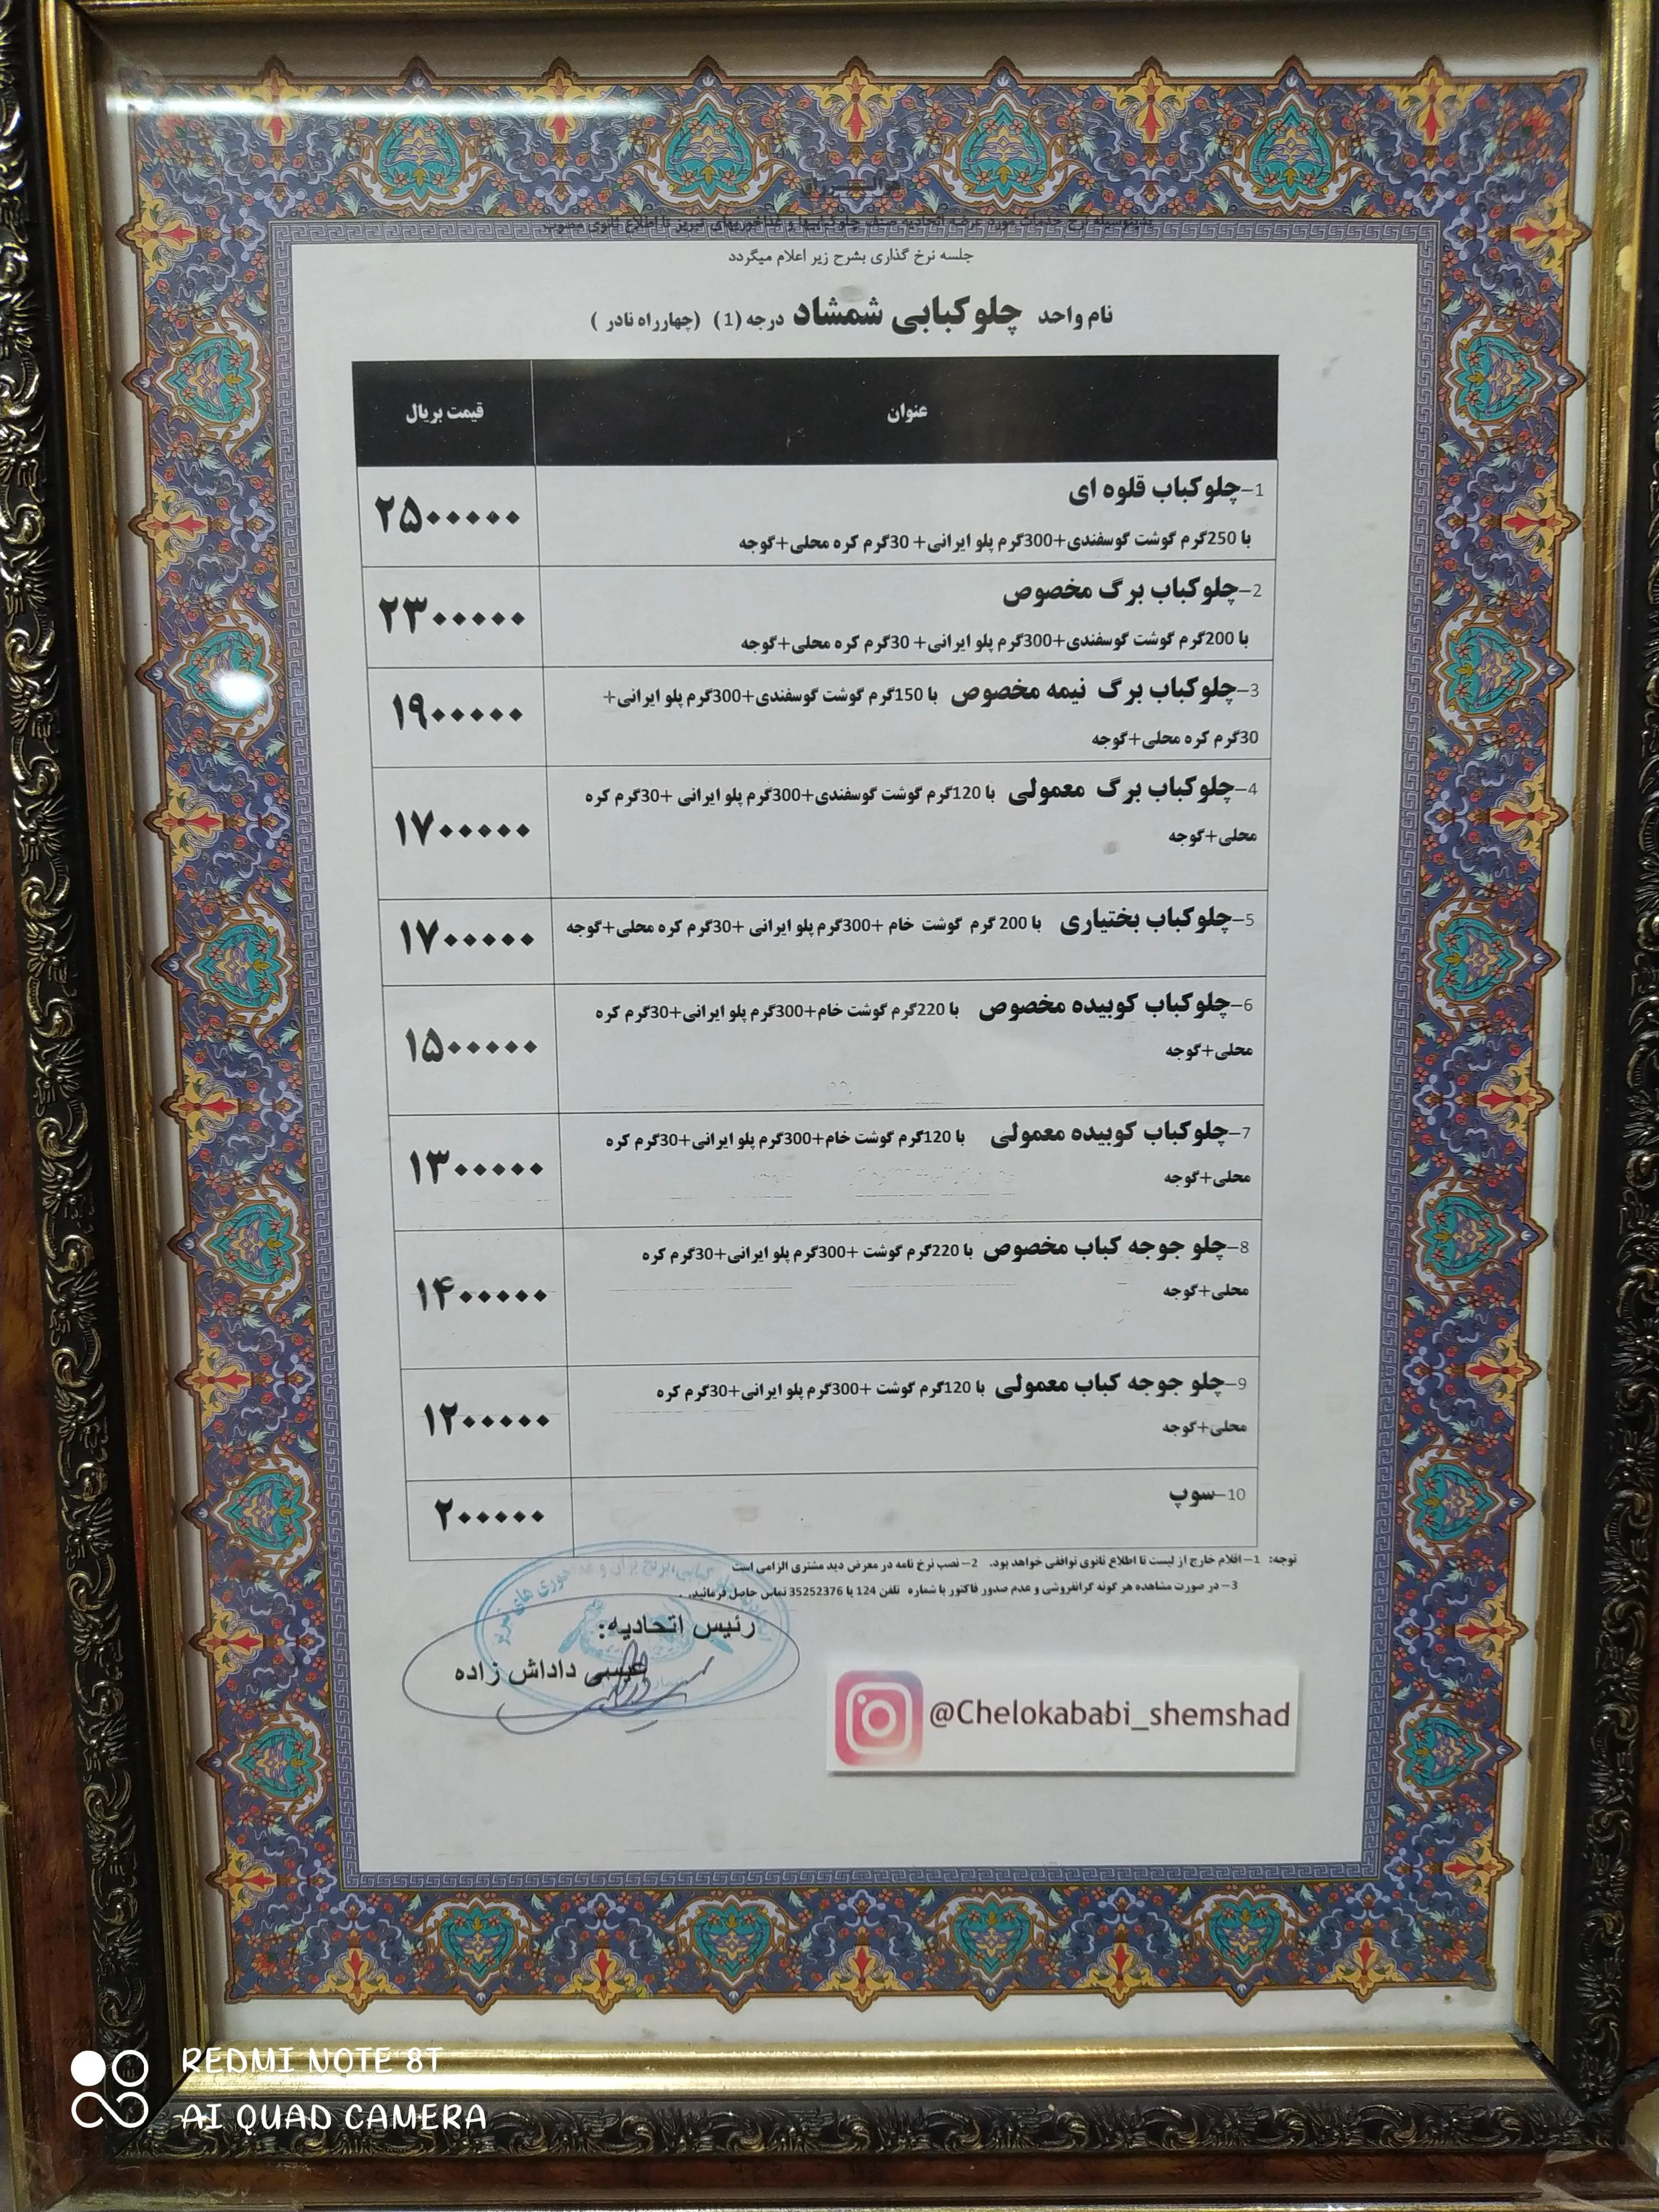 جلسه نرخ گذاری بشرح زیر اعلام میگردد
نام واحد چلوکبابی شمشاد درجه (1) (چهارراه نادر )
عنوان
قیمت بریال
1-چلوکباب قلوه ای
با 250گرم گوشت گوسفندی+300گرم پلو ایرانی+ 30گرم کره محلی+گوجه
۲۵۰۰۰۰۰
2-چلوکباب برگ مخصوص
با 200گرم گوشت گوسفندی+300گرم پلو ایرانی+ 30گرم کره محلی+گوجه
۲۳۰۰۰۰۰
3-چلوکباب برگ نیمه مخصوص با 150گرم گوشت گوسفندی+300گرم پلو ایرانی+
30گرم کره محلی+گوجه
۱۹۰۰۰۰۰
4-چلوکباب برگ معمولی با 120گرم گوشت گوسفندی+300گرم پلو ایرانی +30گرم کره
محلی+گوجه
۱۷۰۰۰۰۰
5-چلوکباب بختیاری با 200 گرم گوشت خام +300گرم پلو ایرانی +30گرم کره محلی+گوجه
۱۷۰۰۰۰۰
6-چلوکباب کوبیده مخصوص با 220گرم گوشت خام+300گرم پلو ایرانی+30گرم کره
محلی+گوجه
۱۵۰۰۰۰۰
7-چلوکباب کوبیده معمولی با 120گرم گوشت خام+300گرم پلو ایرانی+30گرم کره
محلی+گوجه
۱۳۰۰۰۰۰
8-چلو جوجه کباب مخصوص با 220گرم گوشت +300گرم پلو ایرانی+30گرم کره
محلی+گوجه
۱۴۰۰۰۰۰
9-چلو جوجه کباب معمولی با 120گرم گوشت +300گرم پلو ایرانی+30گرم کره
محلی+گوجه
۱۲۰۰۰۰۰
10-سوپ
۲۰۰۰۰۰
توجه: 1-اقلام خارج از لیست تا اطلاع ثانوی توافقی خواهد بود. 2-نصب نرخ نامه در معرض دید مشتری الزامی است
3-در صورت مشاهده هر گونه گرانفروشی و عدم صدور فاکتور با شماره تلفن 124 یا 35252376 تماس حاصل فرمائید.
رئیس اتحادیه:
داداش زاده
@Chelokababi_shemshad
REDMI NOTE 8T
AI QUAD CAMERA